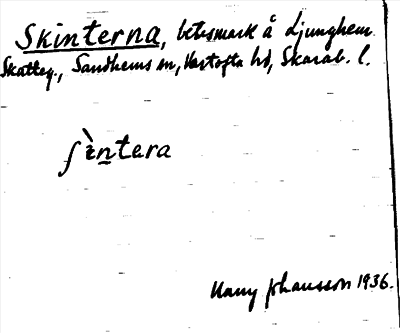 Skinterna, betesmark å Ljunghem
Skatteg., Sandhems sn, Vartofta hd, Skarab. l.
ʃɛ̀ntara
Harry Johansson 1936.